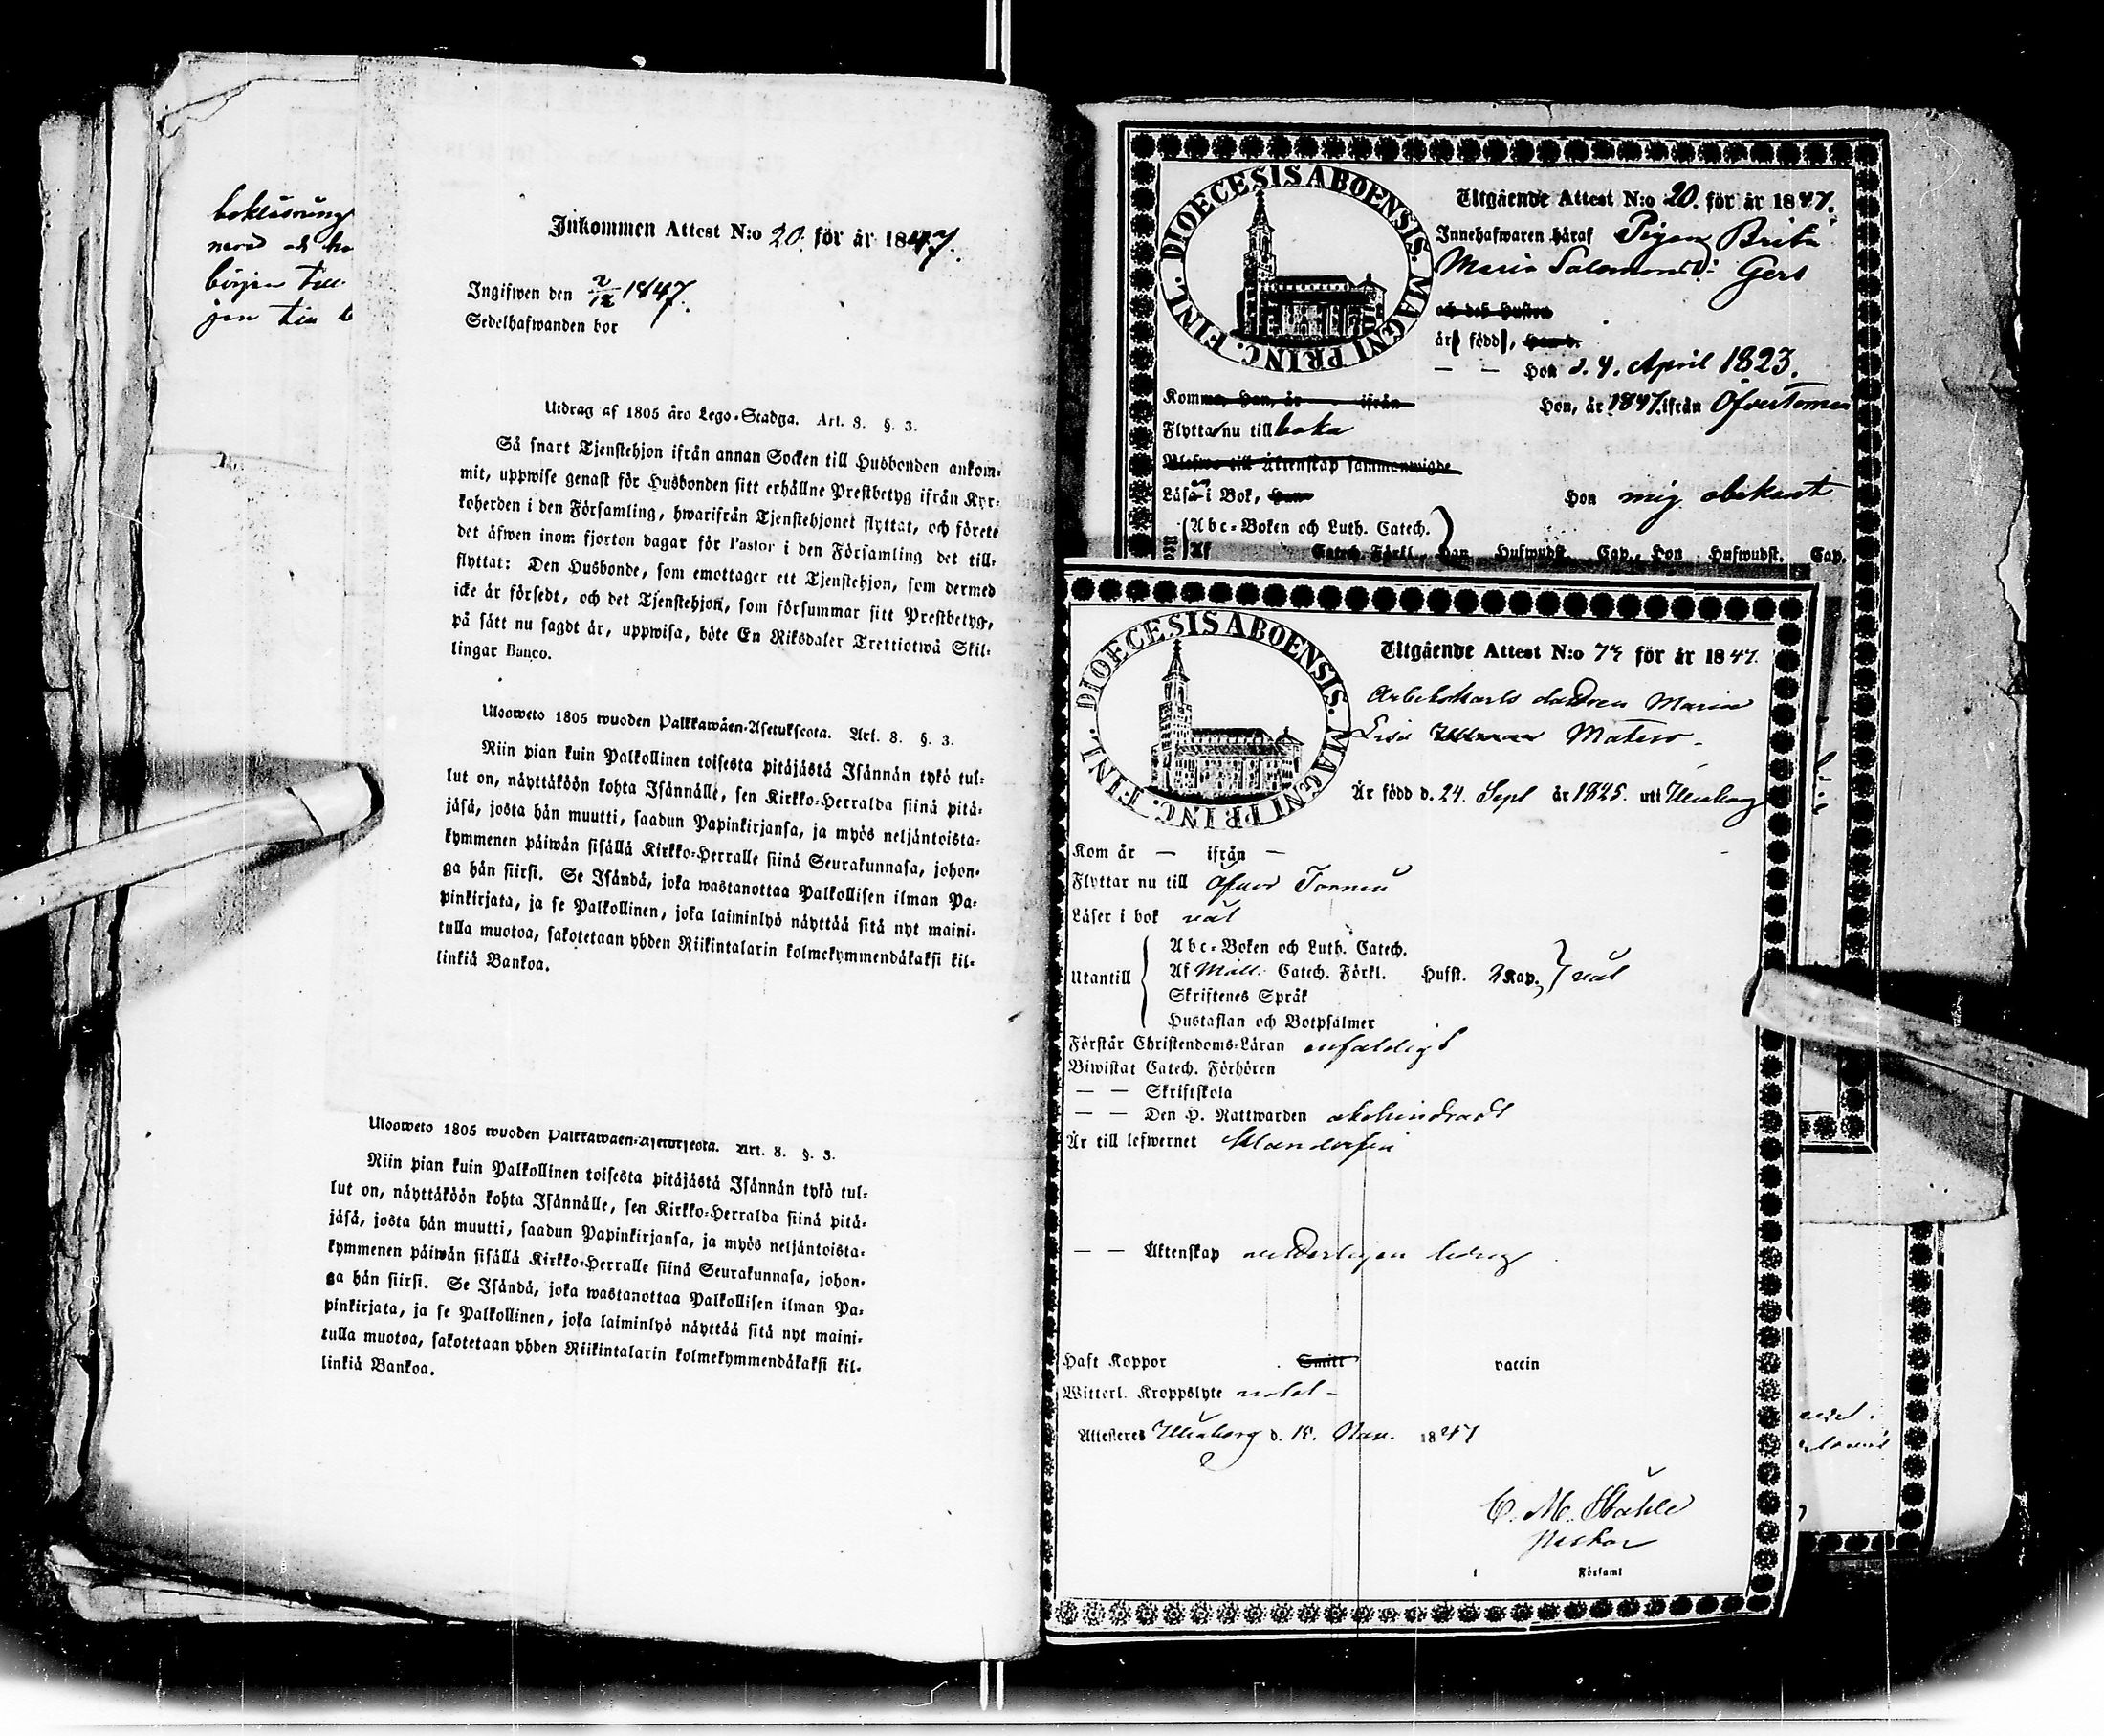 boklåsning
börjen till
Inkommen Attest N:o 20. för år 1847.
Ingifwen den 2/12 1847.
Sedelhafwanden bor
Utdrag af 1805 års Lego-Stadga. Art. 8. §. 3.
Så snart Tjenstehjon ifrån annan Socken till Husbonden ankom-
mit, uppwise genast för Husbonden sitt erhållne Prestbetyg ifrån Kyr-
koherden i den Församling, hwarifrån Tjenstehjonet flyttat, och förete
det äfwen inom fjorton dagar för Pastor i den Församling det till-
flyttat: Den Husbonde, som emottager ett Tjenstehjon, som dermed
icke är försedt, och det Tjenstehjon, som försummar sitt Prestbetyg,
på sätt nu sagdt är, uppwisa, böte En Riksdaler Trettiotwå Skil-
lingar Banco.
Ulosweto 1805 wuoden Palkkawäen-Asetuksesta. Art. 8. §. 3.
Niin pian kuin Palkollinen toisesta pitäjästä Isännän tykö tul-
lut on, näyttäköön kohta Isännälle, sen Kirkko-Herralda siinä pitä-
jäsä, josta hän muutti, saadun Papinkirjansa, ja myös neljäntoista-
kymmenen päiwän sisällä Kirkko-Herralle siinä Seurakunnasa, johon-
ga hän siirsi. Se Isändä, joka wastanottaa Palkollisen ilman Pa-
pinkirjata, ja se Palkollinen, joka laiminlyö näyttää sitä nyt maini-
tulla muotoa, sakotetaan yhden Riikintalarin kolmekymmendäkaksi kil-
linkiä Bankoa.
Ulosweto 1805 wuoden Palkkawäen-Asetuksesta. Art. 8. §. 3.
Niin pian kuin Palkollinen toisesta pitäjästä Isännän tykö tul-
lut on, näyttäköön kohta Isännälle, sen Kirkko-Herralda siinä pitä-
jäsä, josta hän muutti, saadun Papinkirjansa, ja myös neljäntoista-
kymmenen päiwän sisällä Kirkko-Herralle siinä Seurakunnasa, johon-
ga hän siirsi. Se Isändä, joka wastanottaa Palkollisen ilman Pa-
pinkirjata, ja se Palkollinen, joka laiminlyö näyttää sitä nyt maini-
tulla muotoa, sakotetaan yhden Riikintalarin kolmekymmendäkaksi kil-
linkiä Bankoa.
DIOECESIS ABOENSIS. MAGNI PRINC. FINL.
Utgående Attest N:o 20. för år 1847.
Innehafwaren häraf Pigan Brita
Maria Salomonsd: Gers
och deß Hustru
är född, Han d.
— — Hon d. 4. April 1823.
Komma, Han, år - ifrån Hon, år 1847. ifrån Öfvertorneå
Flytta nu tillbaka
Blefwo till Äktenskap sammanwigde
Läsa i Bok, Han Hon mig obekant
Abc-Boken och Luth. Catech.
Af Catech. Förkl., Han Hufwudst. Cap., Hon Hufwudst. Cap.
DIOECESIS ABOENSIS. MAGNI PRINC. FINL.
Utgående Attest N:o 72 för år 1847.
Arbetskarls dottren Maria
Lisa Matero
Är född d. 24. Sept år 1825. uti Uleåborg
Kom år — ifrån —
Flyttar nu till Öfver Torneå
Läser i bok väl
Utantill
Abc-Boken och Luth. Catech.
Af Möll. Catech. Förkl. Hufst. 3 Kap. väl
Skriftenes Språk
Hustaflan och Botpsalmer
Förstår Christendoms-Läran enfaldigt
Biwistat Catech. Förhören
— — Skriftskola
— — Den H. Nattwarden obehindradt
Är till lefwernet klanderfri
— — Äktenskap ledig
Haft Koppor Smitt vaccin
Witterl. Kroppslyte
Attesteres Uleåborg d. 15. Nov. 1847
C. M. Ståhle
Pastor
i Församl